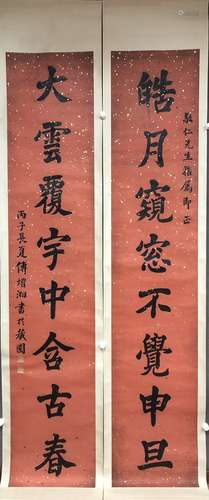 敬仁先生雅屬即正
皓月窺窓不覺申旦
大雲覆宇中含古春
丙子長夏傅增湘書於藏園